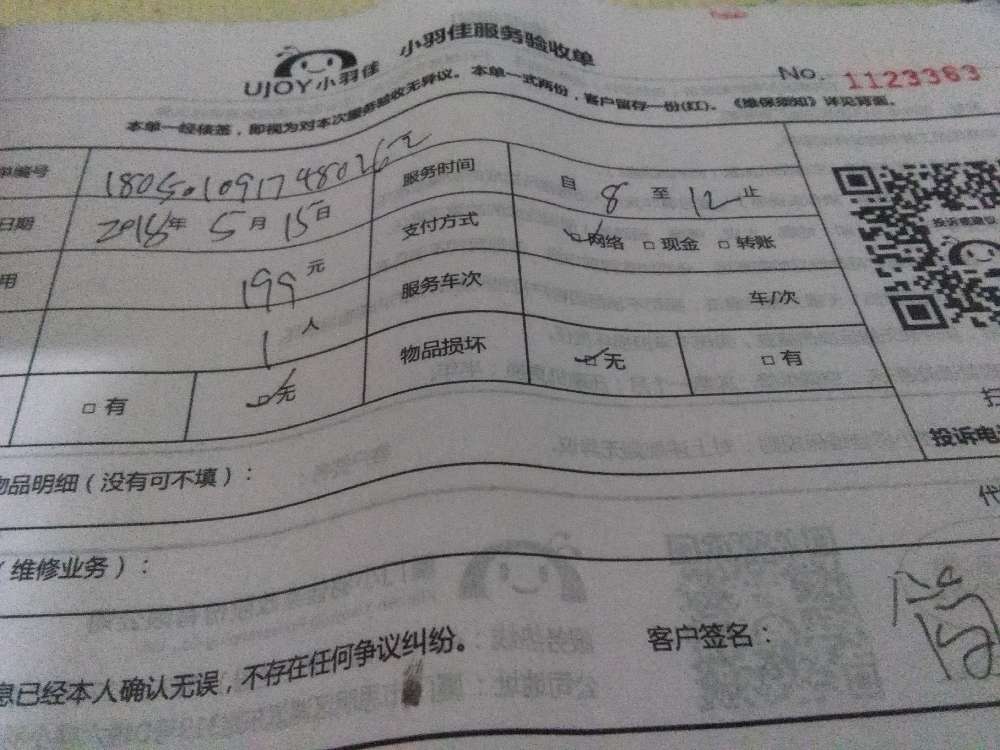 UJOY小羽佳 小羽佳服务验收单
No. 1123363
本单一经核签，即视为对本次服务验收无异议。本单一式两份，客户留存一份(红)。《维保须知》详见背面。
单编号 服务时间 自 8 至 12 止
日期 2018年 5月 15日 支付方式 □网络 □现金 □转账
用 199 元 服务车次 车/次
1 人 物品损坏 □无 □有
□有 □无
投诉电
物品明细（没有可不填）：
（维修业务）：
息已经本人确认无误，不存在任何争议纠纷。 客户签名：